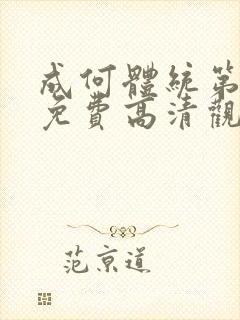 成何體統第
免費高清觀
范京道